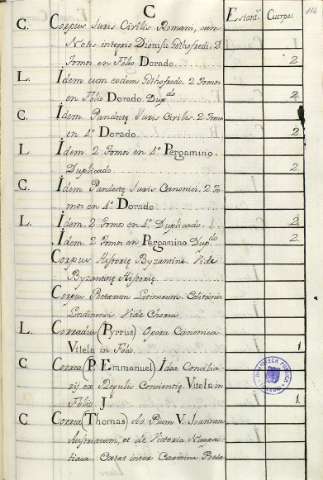 C Estant.s Cuerpo
C. Corpus Juris Civilis Romani, cum
Notis integris Dionisii Gothofredi. 2
tomos en folio Dorado. 2
L. Idem cum eodem Gothofredi 2 tomos
en folio Dorado. Dup.do 2
C. Idem Pandectę Juris Civilis. 2 tomos
en 4.o Dorado 2
L. Idem 2 tomos en 4.o Pergamino
Duplicado 2
C. Idem Pandectę Juris Canonici. 2 to
mos en 4.o Dorado
L. Idem 2 tomos en 4.o Duplicado 2
Idem 2 tomos en Pergamino Dup.do 2
Corpus Historię Byzantinę Vide
Byzantinę Historię
Corpus Poetarum Latinorum
Vide
L. Corradus (Pyrrus) Opera Canonica
Vitela in folio 1
C. Correa (P. Emmanuel) Idea Consilia
rij ex Regula Conscientię Vitela in
folio 1
C. Correa (Thomas) de Pium V. Joannem
Austriacum, et de Victoria
inter Carmina